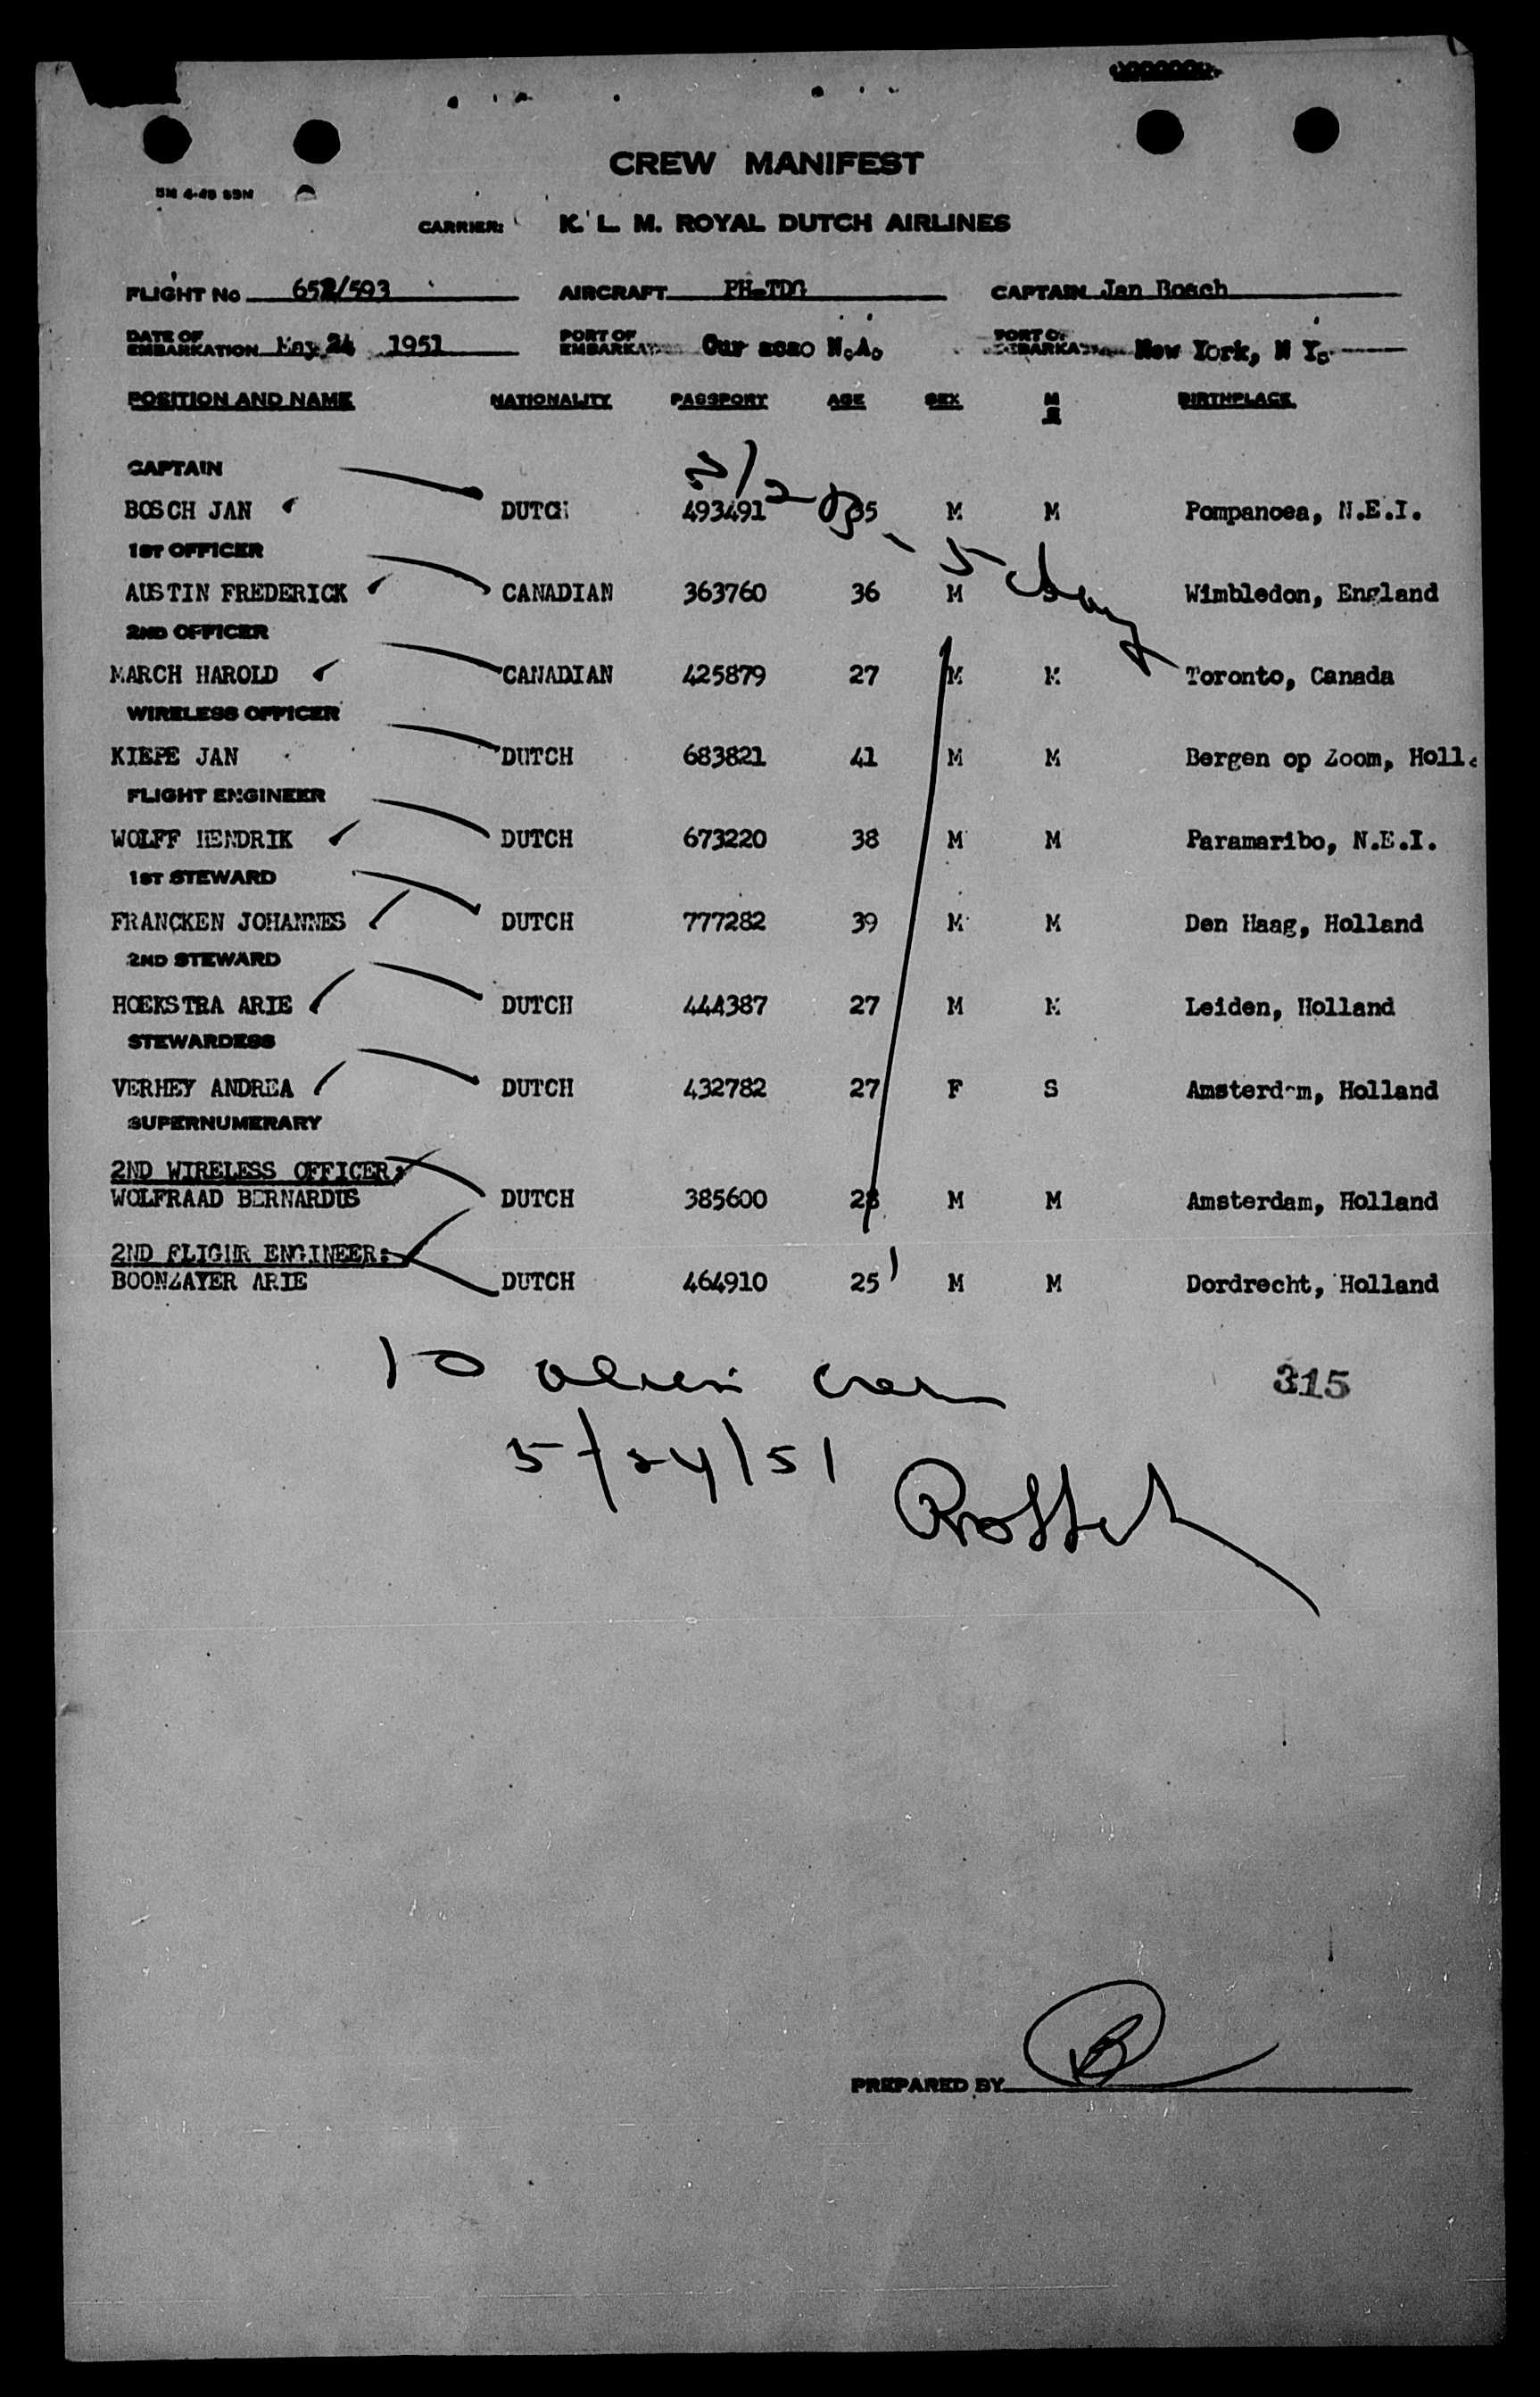 CREW MANIFEST
CARRIER: K. L. M. ROYAL DUTCH AIRLINES
FLIGHT No 652/593 AIRCRAFT PH-TDG CAPTAIN Jan Bosch
DATE OF EMBARKATION May 24 1951 PORT OF EMBARKA Cur acao N.A. PORT OF New York, N Y.
POSITION AND NAME NATIONALITY PASSPORT AGE SEX M S BIRTHPLACE
CAPTAIN
BOSCH JAN DUTCH 493491 35 M M Pompanoea, N.E.I.
1ST OFFICER
AUSTIN FREDERICK CANADIAN 363760 36 M Wimbledon, England
2ND OFFICER
MARCH HAROLD CANADIAN 425879 27 M M Toronto, Canada
WIRELESS OFFICER
KIEPE JAN DUTCH 683821 41 M M Bergen op Zoom, Holl.
FLIGHT ENGINEER
WOLFF HENDRIK DUTCH 673220 38 M M Paramaribo, N.E.I.
1ST STEWARD
FRANCKEN JOHANNES DUTCH 777282 39 M M Den Haag, Holland
2ND STEWARD
HOEKSTRA ARIE DUTCH 444387 27 M M Leiden, Holland
STEWARDESS
VERHEY ANDREA DUTCH 432782 27 F S Amsterdam, Holland
SUPERNUMERARY
2ND WIRELESS OFFICER:
WOLFRAAD BERNARDUS DUTCH 385600 28 M M Amsterdam, Holland
2ND FLIGHR ENGINEER:
BOONZAYER ARIE DUTCH 464910 25 M M Dordrecht, Holland
10 alien crew
315
5/24/51
PREPARED BY